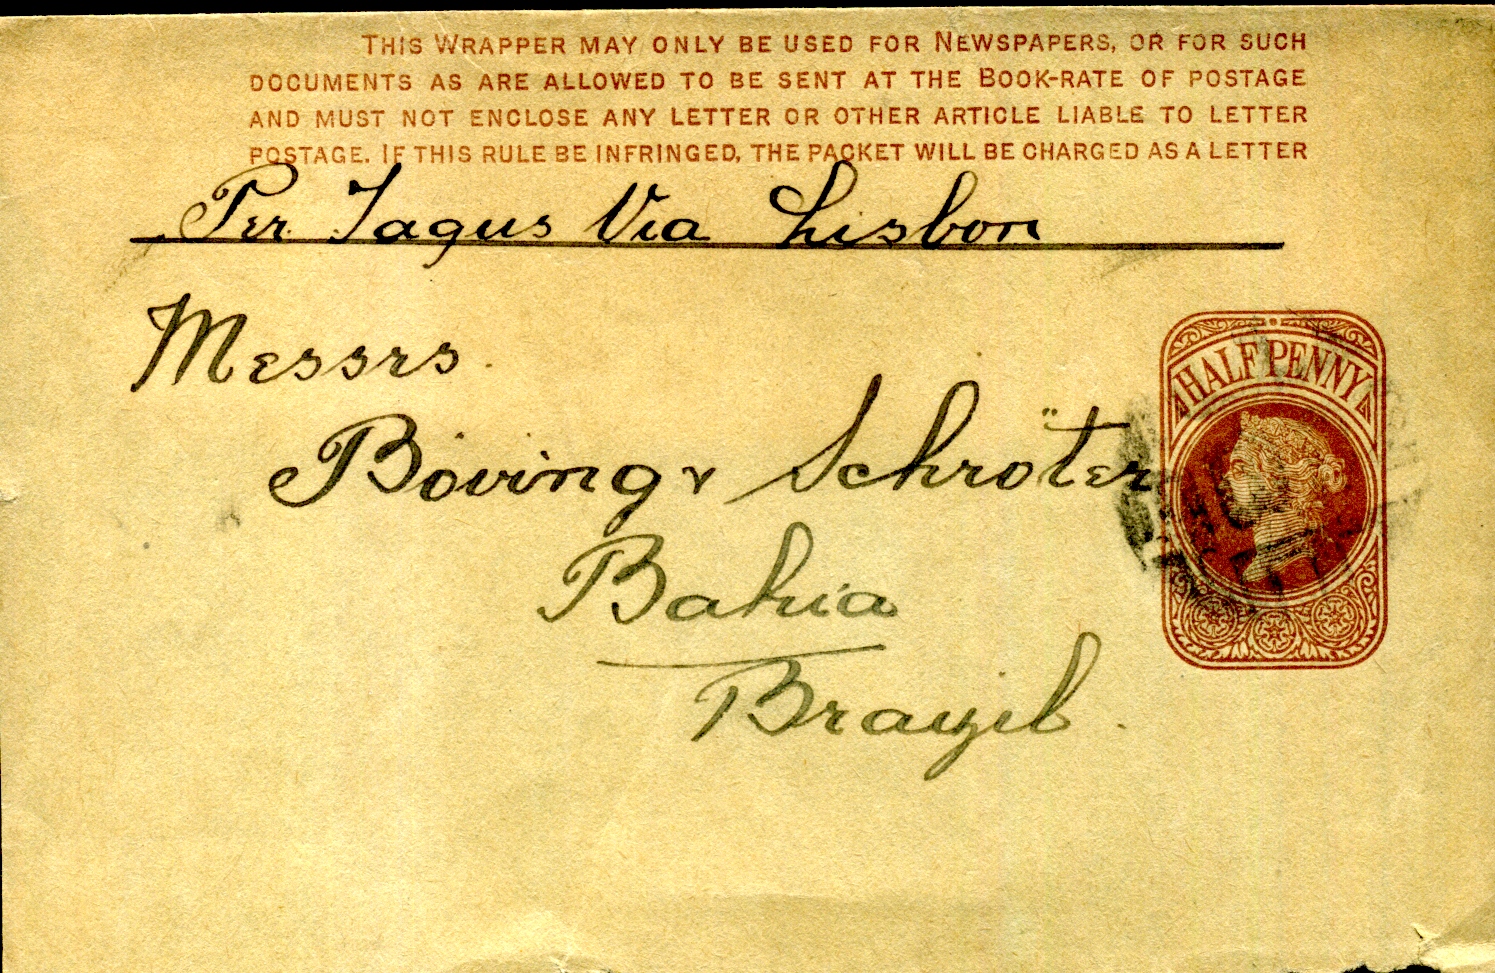 THIS WRAPPER MAY ONLY BE USED FOR NEWSPAPERS, OR FOR SUCH
DOCUMENTS AS ARE ALLOWED TO BE SENT AT THE BOOK-RATE OF POSTAGE
AND MUST NOT ENCLOSE ANY LETTER OR OTHER ARTICLE LIABLE TO LETTER
POSTAGE. IF THIS RULE BE INFRINGED, THE PACKET WILL BE CHARGED AS A LETTER
Per Tagus Via Lisbon
Messrs
HALFPENNY
Boving & Schröter
Bahia
Brazil